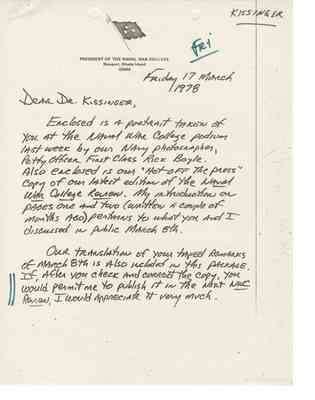 KISSINGER
Fri
PRESIDENT OF THE NAVAL WAR COLLEGE
Newport, Rhode Island
02840
Friday 17 March
1978
Dear Dr. Kissinger,
Enclosed is a portrait taken of
you at the Naval War College podium
last week by our Navy photographer,
Petty Officer First Class Rick Boyle.
Also enclosed is our "Hot off the press"
copy of our latest edition of the Naval
War College Review. My introduction on
pages one and two (written a couple of
months ago) pertains to what you and I
discussed in public March 8th.
Our translation of your taped remarks
of March 8th is also included in this package.
If, after you check and correct the copy, you
would permit me to publish it in the next NWC
Review, I would appreciate it very much.